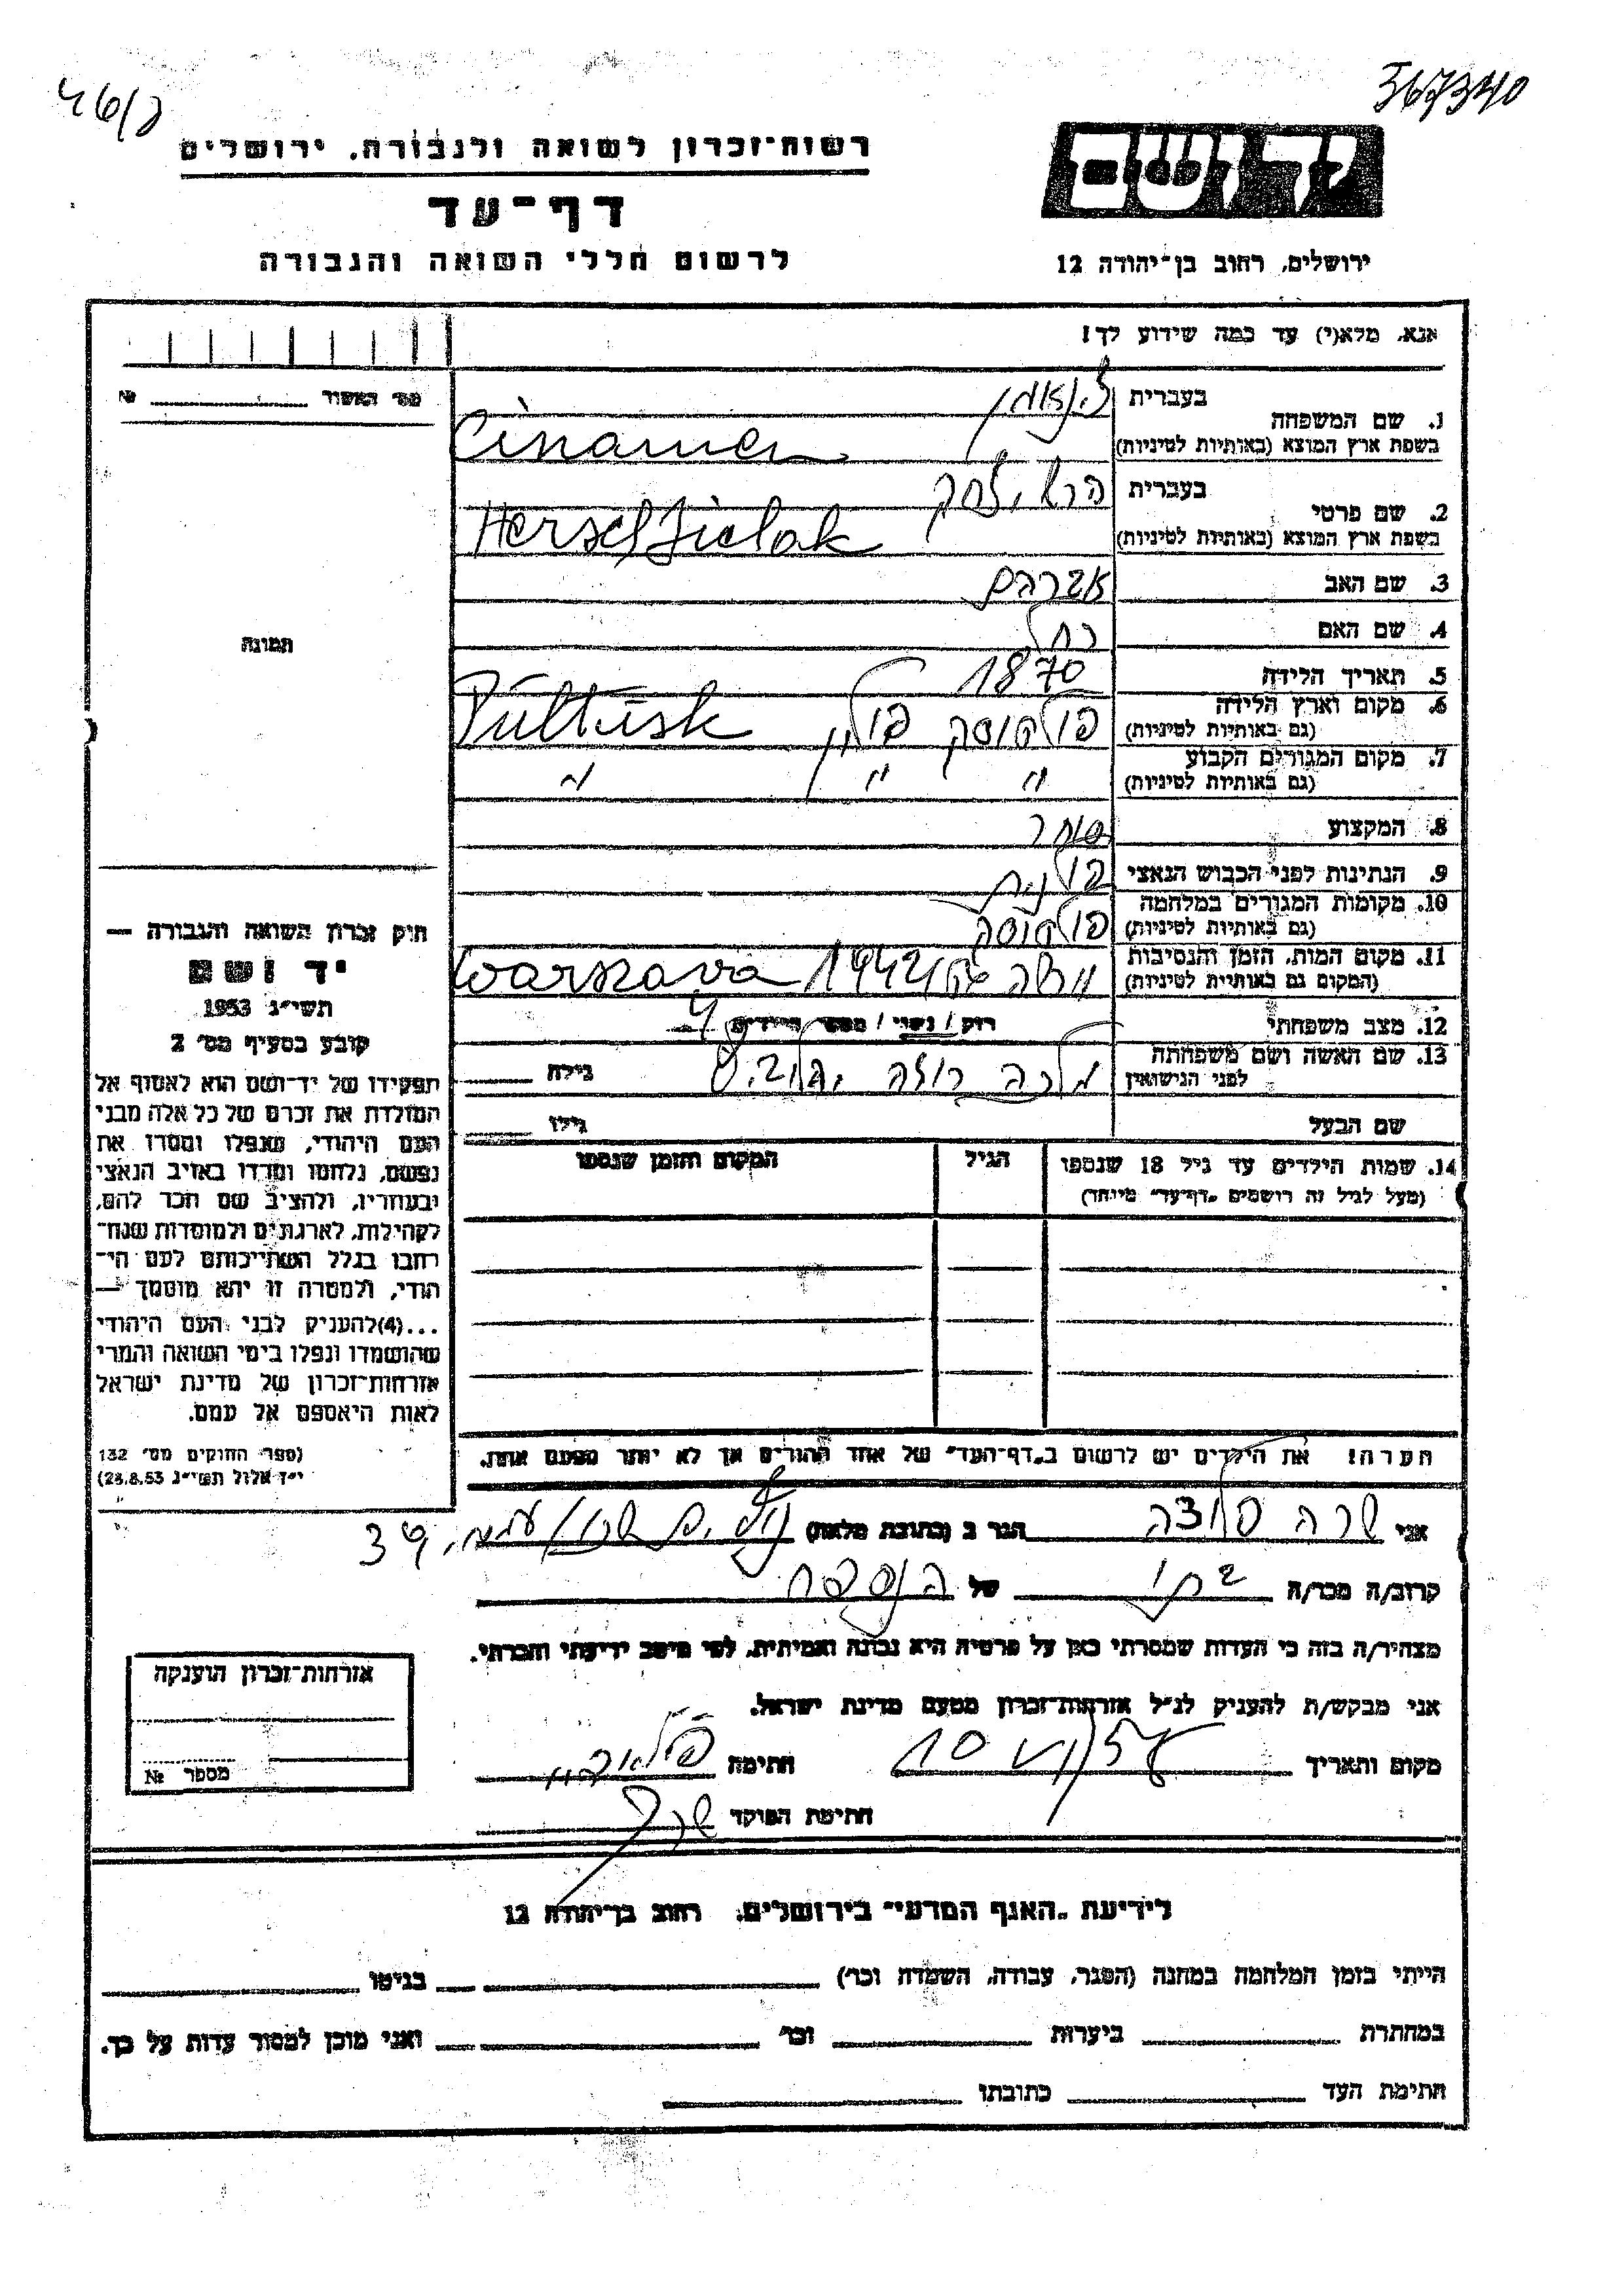 367340
רשות־זכרון לשואה ולגבורה, ירושלים
דף־עד
לרשום חללי השואה והגבורה
ירושלים, רחוב בן־יהודה 12
אנא, מלא(י) עד כמה שידוע לך!
מס׳ האשור №
תמונה
1. שם המשפחה
בעברית צינאמן
בשפת ארץ המוצא (באותיות לטיניות) Cinamen
2. שם פרטי
בעברית הרש יצחק
בשפת ארץ המוצא (באותיות לטיניות)
3. שם האב אברהם
4. שם האם רחל
5. תאריך הלידה 1870
6. מקום וארץ הלידה (גם באותיות לטיניות) פולטוסק פולין Pultusk
7. מקום המגורים הקבוע (גם באותיות לטיניות) " " "
8. המקצוע סוחר
9. הנתינות לפני הכבוש הנאצי פולנית
10. מקומות המגורים במלחמה (גם באותיות לטיניות) פולטוסק
11. מקום המות, הזמן והנסיבות (המקום גם באותיות לטיניות) 1942 Warszava
12. מצב משפחתי רוק / נשוי / מספר הילדים 4
13. שם האשה ושם משפחתה לפני הנישואין מלכה גילה
שם הבעל גילו
14. שמות הילדים עד גיל 18 שנספו
(מעל לגיל זה רושמים „דף־עד״ מיוחד)
הגיל
המקום והזמן שנספו
הערה! את הילדים יש לרשום ב„דף־העד״ של אחד ההורים אך לא יותר מפעם אחת.
חוק זכרון השואה והגבורה —
יד ושם
תשי״ג 1953
קובע בסעיף מס׳ 2
תפקידו של יד־ושם הוא לאסוף אל
המולדת את זכרם של כל אלה מבני
העם היהודי, שנפלו ומסרו את
נפשם, נלחמו ומרדו באויב הנאצי
ובעוזריו, ולהציב שם וזכר להם,
לקהילות, לארגונים ולמוסדות שנח־
רבו בגלל השתייכותם לעם הי־
הודי, ולמטרה זו יהא מוסמך —
...(4) להעניק לבני העם היהודי
שהושמדו ונפלו בימי השואה והמרי
אזרחות־זכרון של מדינת ישראל
לאות היאספם אל עמם.
(ספר החוקים מס׳ 132
י״ז אלול תשי״ג 28.8.53)
אני שרה הגר ב (כתובת מלאה) 39
קרוב/ה מכר/ה בתו של הנספה
מצהיר/ה בזה כי העדות שמסרתי כאן על פרטיה היא נכונה ואמיתית, לפי מיטב ידיעתי והכרתי.
אני מבקש/ת להעניק לנ״ל אזרחות־זכרון מטעם מדינת ישראל.
מקום ותאריך חתימה
חתימת הפוקד
אזרחות־זכרון הוענקה
מספר №
לידיעת „האגף המדעי״ בירושלים, רחוב בן־יהודה 12
הייתי בזמן המלחמה במחנה (הסגר, עבודה, השמדה וכו׳) בגיטו
במחתרת ביערות וכו׳ ואני מוכן למסור עדות על כך.
חתימת העד כתובתו